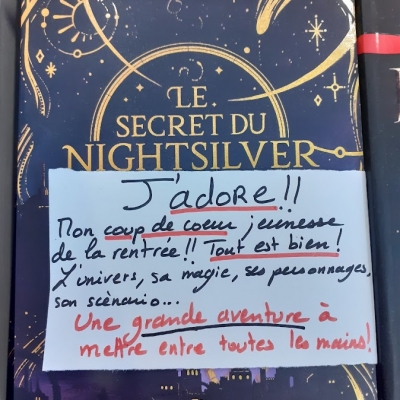 LE
SECRET DU
NIGHTSILVER
J'adore!!
Mon coup de coeur jeunesse
de la rentrée!! Tout est bien!
L'univers, sa magie, ses personnages,
son scènario...
Une grande aventure à
mettre entre toutes les mains!